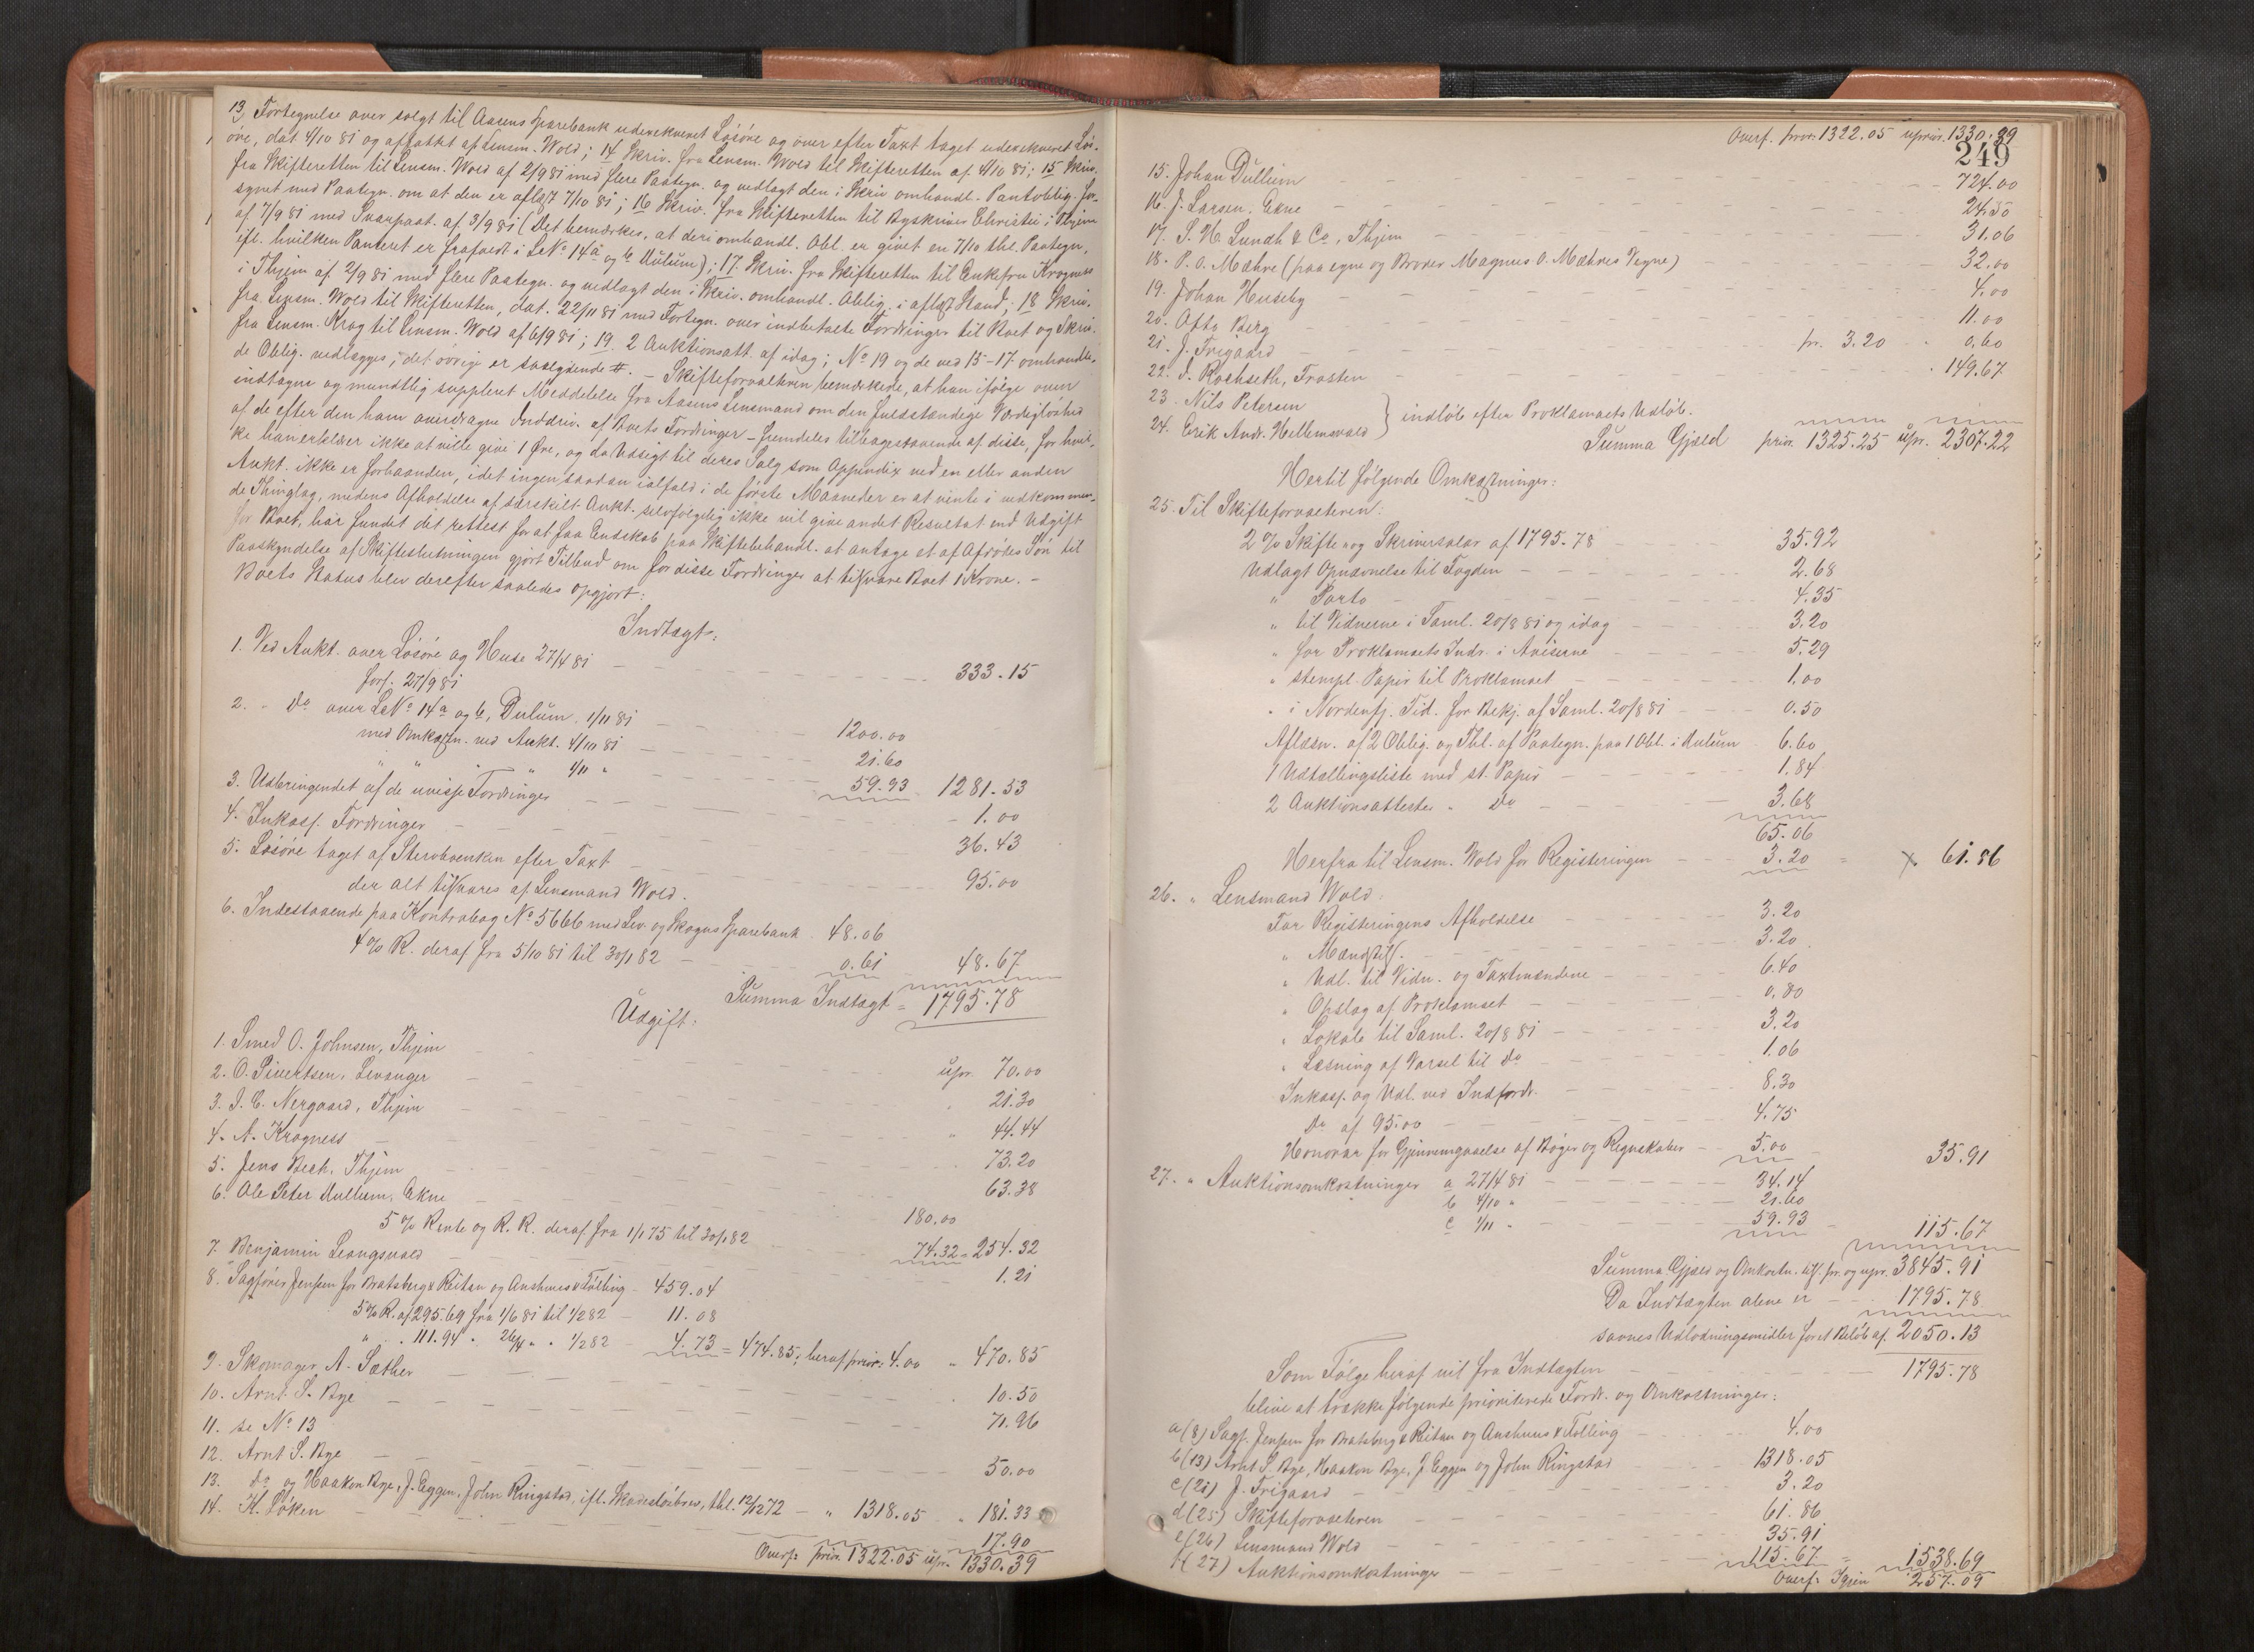 13, Fortegnelse over solgt til Aasens Sparebank uderekvueret Løsøre og over efter Taxt taget uderekvueret Løs-
øre, dat. 4/10 81 og affattet af Lensm. Wold; 14 Skriv. fra Lensm. Wold til Skifteretten af 4/10 81; 15 Skriv.
fra Skifteretten til Lensm. Wold af 2/9 81 med flere Paategn. og vedlagt den i Skriv omhandl. Pantoblig. for-
synet med Paategn. om at den er aflæst 7/10 81; 16 Skriv. fra Skifteretten til Byskriver Christie i Thjem
af 7/9 81 med Svarpaat. af 3/9 81 (Det bemærkes, at deri omhandl. Obl. er givet en 7/10 thl. Paategn.
ifl. hvilken Panteret er frafaldt i LNo 14a og b Dulum); 17 Skriv. fra Skifteretten til Enkefru Krogness
i Thjem af 2/9 81 med flere Paategn. og vedlagt den i Skriv. omhandl. Oblig. i aflæst Stand; 18 Skriv.
fra Lensm. Wold til Skifteretten, dat. 22/11 81 med Fortegn. over indbetalte Fordringer til Boet og Skriv.
fra Lensm. Krog til Lensm. Wold af 6/9 81; 19 2 Auktionsatt. af idag; No 19 og de ved 15-17 omhandle-
de Oblig. vedlægges; det øvrige er saalydende #. - Skifteforvalteren bemærkede, at han ifølge oven
indtagne og mundtlig suppleret Meddelelse fra Aasens Lensmand om den fuldstændige Værdiløshed
af de efter den ham overdragne Inddriv. af Boets Fordringer - fremdeles tilbagestaaende af disse, for hvil-
ke han erklærer ikke at ville give 1 Øre, og da Udsigt til deres Salg som Appendix ved en eller anden
Aukt. ikke er forhaanden, idet ingen saadan ialfald i de første Maaneder er at vente i vedkommen-
de Thinglag, medens Afholdelse af særskilt Aukt. selvfølgelig ikke vil give andet Resultat end Udgift
for Boet, har fundet det rettest for at faa Endskab paa Skiftebehandl. at antage et af Afdødes Søn til
Paaskyndelse af Skifteslutningen gjort Tilbud om for disse Fordringer at tilsvare Boet 1 Krone. -
Boets Status blev derefter saaledes opgjort:
Indtægt:
1. Ved Aukt. over Løsøre og Huse 27/4 81
forf. 27/9 81 333.15
2. " Do over LNo 14a og b, Dulum. 1/11 81 1200.00
med Omkostn. ved Aukt. 4/10 81 21.60
" " " 1/11 " 59.93 1281.53
3. Udbringendet af de uvisse Fordringer 1.00
4. Inkass. Fordringer 36.43
5. Løsøre taget af Stervboenken efter Taxt 95.00
der alt tilsvares af Lensmand Wold.
6. Indestaaende paa Kontrabog No 5666 med Lev. og Skogns Sparebank 48.06
4 % R. deraf fra 5/10 81 til 30/1 82 0.61 48.67
Summa Indtægt = 1795.78
Udgift:
1. Smed O. Johnsen, Thjem upr. 70.00
2. O. Sivertsen, Levanger 21.30
3. I. C. Nergaard, Thjem " 44.44
4. A. Krogness 73.20
5. Jens Beck, Thjem 63.38
6. Ole Peter Dullum, Ekne 180.00
5 % Rente og R. R. deraf fra 1/1 75 til 30/1 82 74.32 = 254.32
7. Benjamin Leangsvald 1.21
8. Sagfører Jenssen for Bratsberg & Reitan og Aushuus & Følling - 459.04
5 % R. af 295.69 fra 1/6 81 til 1/2 82 11.08
" . 111.94 " 26/4 " " 1/2 82 4.73 = 474.85; heraf prior. 4.00 " 470.85
9. Skomager A. Sæther 10.50
10. Arnt S. Bye 71.96
11. se No 13
12. Arnt S. Bye 50.00
13. Do og Haakon Bye, J. Eggen, John Ringstad, ifl. Skadesløsbrev, thl. 12/12 72 " 1318.05 " 181.33
14. K. Løken 17.90
Overf. prior. 1322.05 upr. 1330.39
Overf. prior. 1322.05 uprior. 1330.39
249
15. Johan Dullum 724.00
16. J. Larsen, Ekne 24.50
17. S. H. Lundh & Co, Thjem 31.06
18. P. O. Mæhre (paa egne og Broder Magnus O. Mæhres Vegne) 32.00
19. Johan Huseby 4.00
20. Otto Berg 11.00
21. J. Frigaard pr. 3.20 0.60
22. I. Rochseth, Frosten 149.67
23. Nils Petersen
24. Erik Andr. Hellemsvald } indløb efter Proklamaets Udløb.
Summa Gjæld prior. 1325.25 upr. 2307.22
Hertil følgende Omkostninger:
25. Til Skifteforvalteren:
2 % Skifte- og Skriversalær af 1795.78 35.92
Udlagt Opnævnelse til Fogden 2.68
" Porto 4.35
" til Vidnerne i Saml. 20/8 81 og idag 3.20
" for Proklamaets Indr. i Aviserne 5.29
" stempl. Papir til Proklamaet 1.00
" i Nordenfj. Tid. for Bekj. af Saml. 20/8 81 0.50
Aflæsn. af 2 Oblig. og Thl. af Paategn. paa 1 Obl. i Dulum 6.60
1 Udtællingsliste med st. Papir 1.84
2 Auktionsattester " Do 3.68
65.06
Herfra til Lensm. Wold for Registeringen 3.20 = 61.86
26. " Lensmand Wold.
For Registeringens Afholdelse 3.20
" Mændstilf. 3.20
" Udl. til Vidn. og Taxtmændene 6.40
" Opslag af Proklamaet 0.80
" Lokale til Saml. 20/8 81 3.20
" Læsning af Varsel til Do 1.06
Inkass. og Udl. ved Indfordr. 8.30
Do af 95.00 4.75
Honorar for Gjennemgaaelse af Bøger og Regnskaber 5.00 35.91
27. " Auktionsomkostninger a 27/4 81 34.14
b 4/10 " 21.60
c 1/11 " 59.93 115.67
Summa Gjæld og Omkostn. tils. pr. og upr. 3845.91
Da Indtægten alene er 1795.78
savnes Udlodningsmidler for et Beløb af 2050.13
Som Følge heraf vil fra Indtægten 1795.78
blive at trække følgende prioriterede Fordr. og Omkostninger:
a (8) Sagf. Jenssen for Bratsberg & Reitan og Aushuus & Følling 4.00
b (13) Arnt S. Bye, Haakon Bye, J Eggen og John Ringstad 1318.05
c (21) J. Frigaard 3.20
d (25) Skifteforvalteren 61.86
e (26) Lensmand Wold 35.91
f (27) Auktionsomkostninger 115.67 = 1538.69
Overf. Igjen 257.09